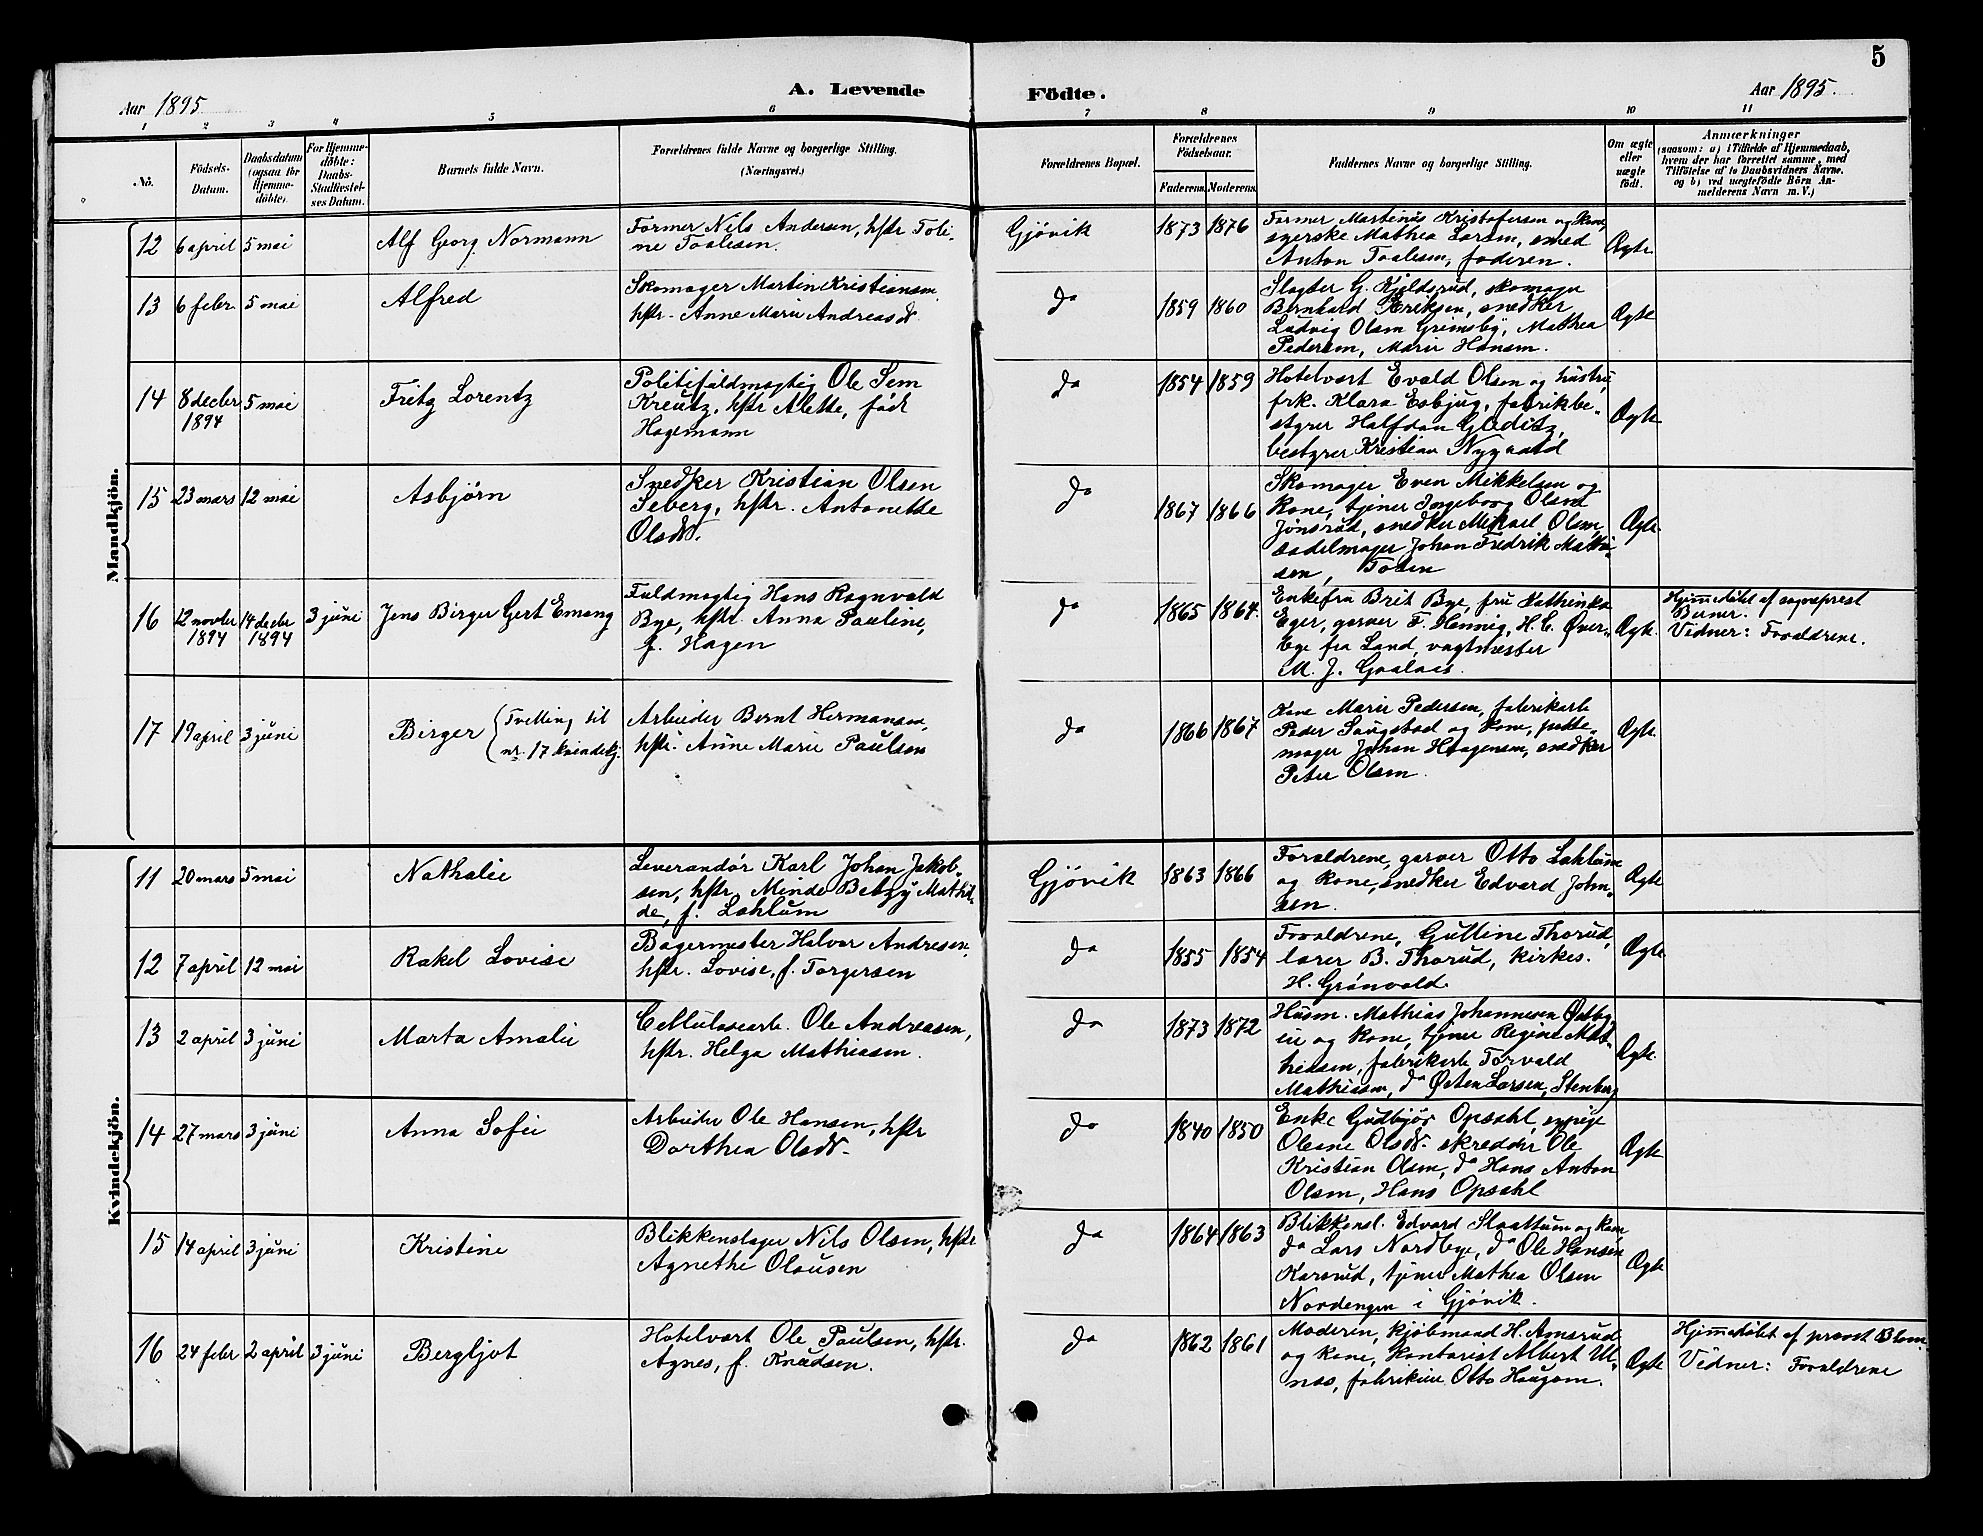 5
Aar 1895.
A. Levende
Födte.
Aar 1895.
1 2 3 4 5 6 7 8 9 10 11
No.
Födsels-
Datum.
Daabsdatum
(ogsaa for
Hjemme-
döbte).
For Hjemme-
döbte:
Daabs-
Stadfæstel-
ses Datum.
Barnets fulde Navn.
Forældrenes fulde Navne og borgerlige Stilling.
(Næringsvei.)
Forældrenes Bopæl.
Forældrenes
Födselsaar.
Faderens. Moderens.
Faddernes Navne og borgerlige Stilling.
Om ægte
eller
uægte
födt.
Anmærkninger
(saasom: a) i Tilfælde af Hjemmedaab,
hvem der har forrettet samme, med
Tilföielse af to Daabsvidners Navne,
og b) ved uægtefödte Börn An-
melderens Navn m. V.)
Mandkjön.
12 6 april 5 mai
Alf Georg Normann
Former Nils Andersen, hstr Toli-
ne Taalesen.
Gjøvik
1873 1876
Former Martinus Kristofersen og kone,
syerske Mathea Larsen, smed
Anton Taalesen, faderen.
Ægte
13 6 febr. 5 mai
Alfred
Skomager Martin Kristiansen
hstr. Anne Marie Andreasdr.
do
1859 1860
Slagter G. Kjeldsrud, skomager
Bernhard Henriksen, snedker
Ludvig Olsen Grimsby, Mathea
Pedersen, Marie Hansen.
Ægte
14 8 decbr 5 mai
1894
Fritz Lorentz
Politifuldmægtig Ole Sem
Kreutz, hstr Alette, født
Hagemann
do
1854 1859
Hotelvært Evald Olsen og hustru,
frk. Klara Esbjug, fabrikbe-
styrer Halfdan Gulditz,
bestyrer Kristian Nygaard
Ægte
15 23 mars 12 mai
Asbjørn
Snedker Kristian Olsen
Seberg, hstr. Antonette
Olsdr.
do
1867 1866
Skomager Even Mikkelsen og
kone, tjener Ingeborg Olsen
Jønsrud, snedker Mikael Olsen,
sadelmager Johan Fredrik Mathi-
sen,
Ægte
16 12 novbr 14 decbr 3 juni
1894 1894
Jens Birger Gert Emang
Fuldmægtig Hans Ragnvald
Bye, hstr. Anna Pauline,
f. Hagen
do
1865 1864.
Enkefru Brit Bye, fru Kathinka
Eger, garver F. Hennig, H. C. Øver-
bye fra Land, vagtmester
M. J. Gaalaas.
Ægte.
Hjemmedøbt af sogneprest
Berner.
Vidner: Forældrene.
17 19 april 3 juni
Birger (Tvilling til
nr. 17 kvindekj.
Arbeider Bernt Hermansen,
hstr. Anne Marie Paulsen
do
1866 1867
Kone Marie Pedersen, fabrikarb
Peder Saugstad og kone, potte-
mager Johan Haagensen, snedker
Peter Olsen.
Ægte
Kvindekjön.
11 20 mars 5 mai
Nathalie
Leverandør Karl Johan Jakob-
sen, hstr. Minde Betzy Mathil-
de, f. Lahlum
Gjøvik
1863 1866
Forældrene, garver Otto Lahlum
og kone, snedker Edvard John-
sen.
Ægte
12 7 april 12 mai
Rakel Lovise
Bagermester Halvor Andresen,
hstr. Lovise, f. Torgersen
do
1855 1854
Forældrene, Gulline Thorud,
lærer B. Thorud, kirkes.
H. Grønvold.
Ægte
13 2 april 3 juni
Marta Amalie
Cellulosearb. Ole Andreasen,
hstr. Helga Mathiasen.
do
1873 1872
Husm. Mathias Johannesen Østby-
ei og kone, tjener Regine Mat-
hiesen, fabrikarb Torvald
Mathiasen, do Østen Larsen, Stenberg
Ægte.
14 27 mars 3 juni
Anna Sofie
Arbeider Ole Hansen, hstr
Dorthea Olsdr.
do
1840 1850
Enke Gudbjør Opsahl, sypige
Olesne Olsdr. skredder Ole
Kristian Olsen, do Hans Anton
Olsen, Hans Opsahl
Ægte
15 14 april 3 juni
Kristine
Blikkenslager Nils Olsen, hstr
Agnethe Olausen
do
1864 1863
Blikkensl. Edvard Slaattum og kone
do Lars Nordbye, do Ole Hansen
Karsrud, tjener Mathea Olsen
Nordengen i Gjøvik.
Ægte
16 24 febr 2 april 3 juni
Bergljot
Hotelvært Ole Paulsen, hstr.
Agnes, f. Knudsen.
do
1862 1861
Moderen, kjøbmand H. Amsrud
og kone, kontorist Albert Ul-
næs, fabrikeier Otto Haugom.
Ægte
Hjemmedøbt af provst Blom.
Vidner: Forældrene